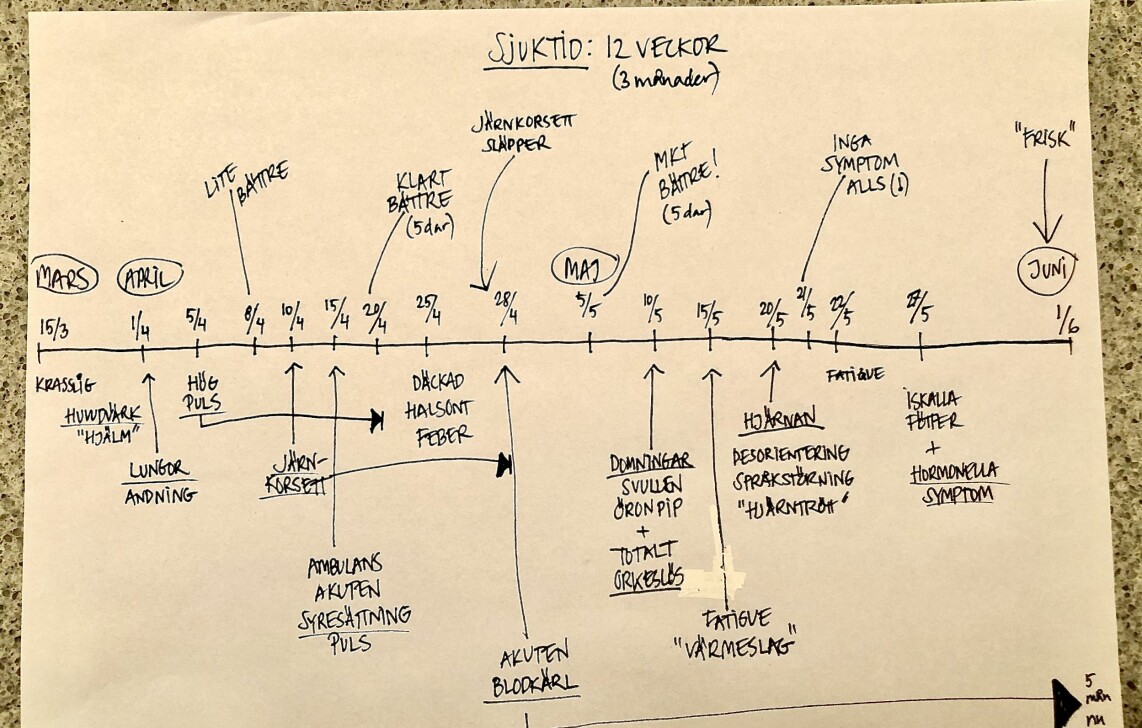 SJUKTID: 12 VECKOR
(3 månader)
JÄRNKORSETT
SLÄPPER
LITE
BÄTTRE
KLART
BÄTTRE
(5 dar)
MKT
BÄTTRE!
(5 dar)
INGA
SYMPTOM
ALLS (!)
"FRISK"
MARS
APRIL
MAJ
JUNI
15/3
1/4
5/4
8/4
10/4
15/4
20/4
25/4
28/4
5/5
10/5
15/5
20/5
21/5
22/5
27/5
1/6
KRASSLIG
HUVUDVÄRK
"HJÄLM"
LUNGOR
ANDNING
HÖG
PULS
JÄRN-
KORSETT
AMBULANS
AKUTEN
SYRESÄTTNING
PULS
DÄCKAD
HALSONT
FEBER
AKUTEN
BLODKÄRL
DOMNINGAR
SVULLEN
ÖRONPIP
+
TOTALT
ORKESLÖS
FATIGUE
"VÄRMESLAG"
HJÄRNAN
DESORIENTERING
SPRÅKSTÖRNING
"HJÄRNTRÖTT"
FATIGUE
ISKALLA
FÖTTER
+
HORMONELLA
SYMPTOM
5
mån
nu